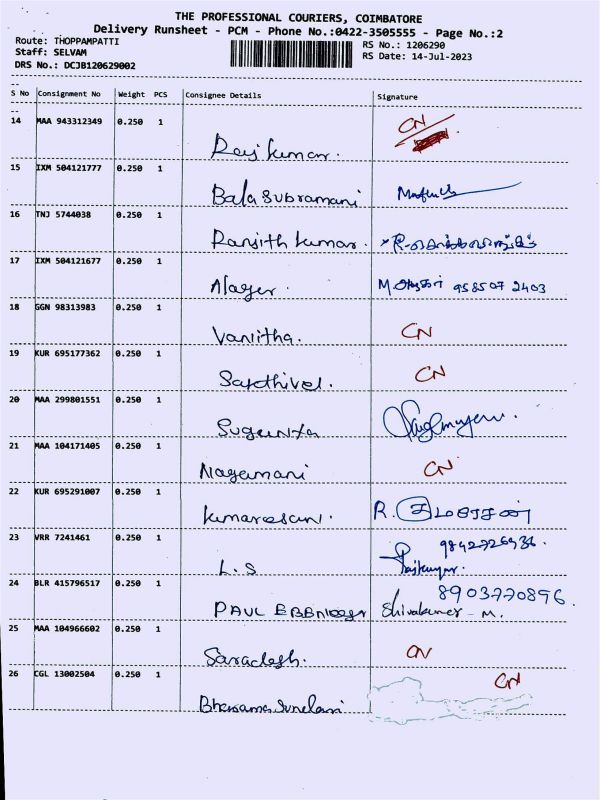 THE PROFESSIONAL COURIERS, COIMBATORE
Delivery Runsheet - PCM - Phone No.:0422-3505555 - Page No.:2
Route: THOPPAMPATTI
RS No.: 1206290
Staff: SELVAM
RS Date: 14-Jul-2023
DRS No.: DCJB120629002
S No Consignment No Weight PCS Consignee Details Signature
14 MAA 943312349 0.250 1 Rajkumar. CN
15 IXM 504121777 0.250 1 Bala subramani
16 TNJ 5744038 0.250 1 Ranjith kumar.
17 IXM 504121677 0.250 1 Nager. M 958507 2403
18 GGN 98313983 0.250 1 Vanitha. CN
19 KUR 695177362 0.250 1 Sakthivel. CN
20 MAA 299801551 0.250 1
21 MAA 104171405 0.250 1 Nagamani CN
22 KUR 695291007 0.250 1 Kumaresan. R.
23 VRR 7241461 0.250 1 L.S 9842726936. Rajkumar.
24 BLR 415796517 0.250 1 PAUL 8903770896. Shivakumar - M.
25 MAA 104966602 0.250 1 CN
26 CGL 13002504 0.250 1 CN